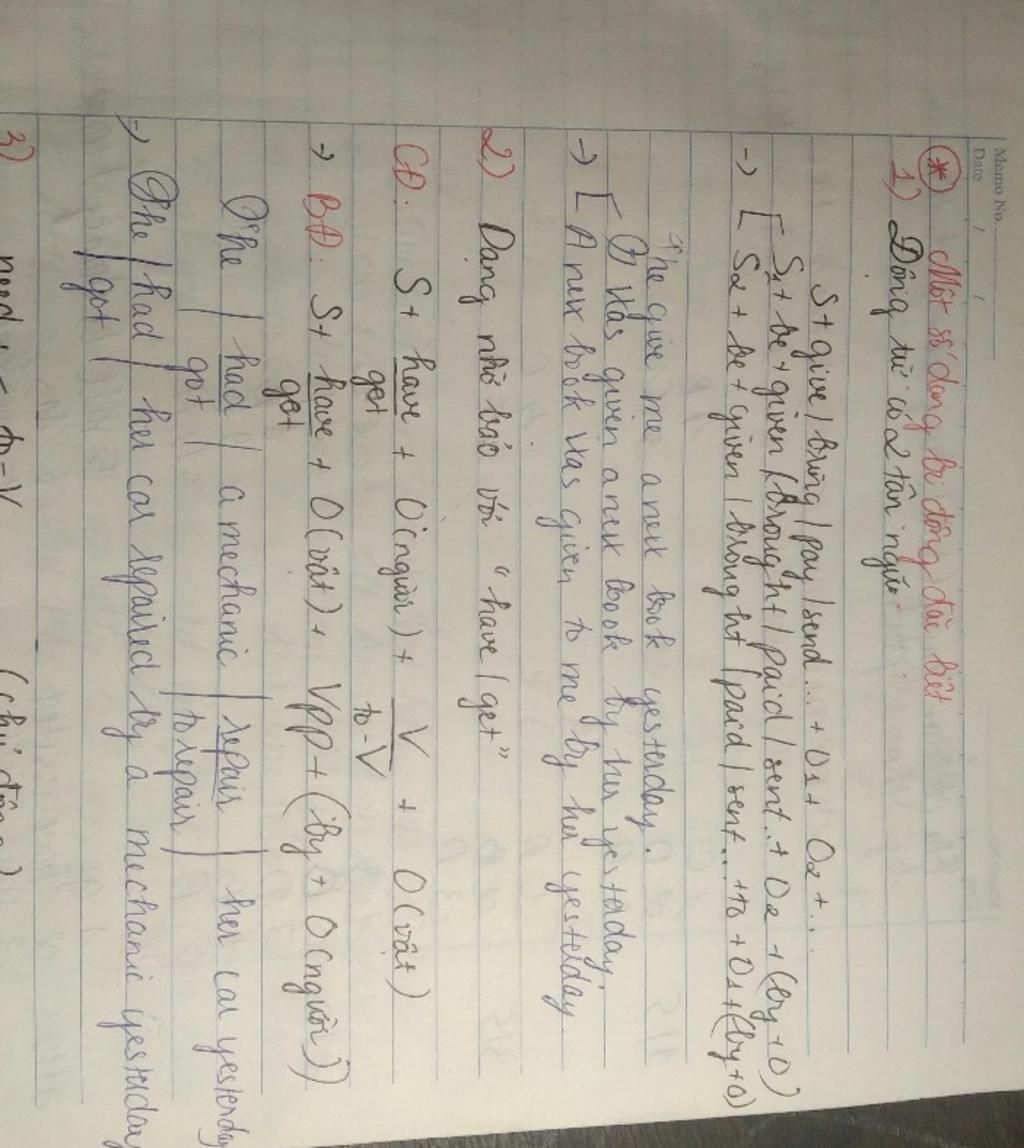 Memo No.
Date / /
(*) Một số dạng bị động đặc biệt
1) Động từ có 2 tân ngữ
S + give / bring / pay / send ... + O1 + O2 + ...
→ [ S1 + be + given / brought / paid / sent .. + O2 + (by + O)
S2 + be + given / brought / paid / sent ... + to + O1 + (by + O)
She give me a new book yesterday.
→ [ I was given a new book by her yesterday.
A new book was given to me by her yesterday
2) Dạng nhờ bảo với "have / get"
CĐ: S + have + O (người) + V + O (vật)
get to-V
→ BĐ: S + have + O (vật) + Vpp + (by + O (người))
get
She / had / a mechanic / repair / her car yesterday
got / to repair /
→ She / had / her car repaired by a mechanic yesterday
/ got /
3) need to-V (chủ động)